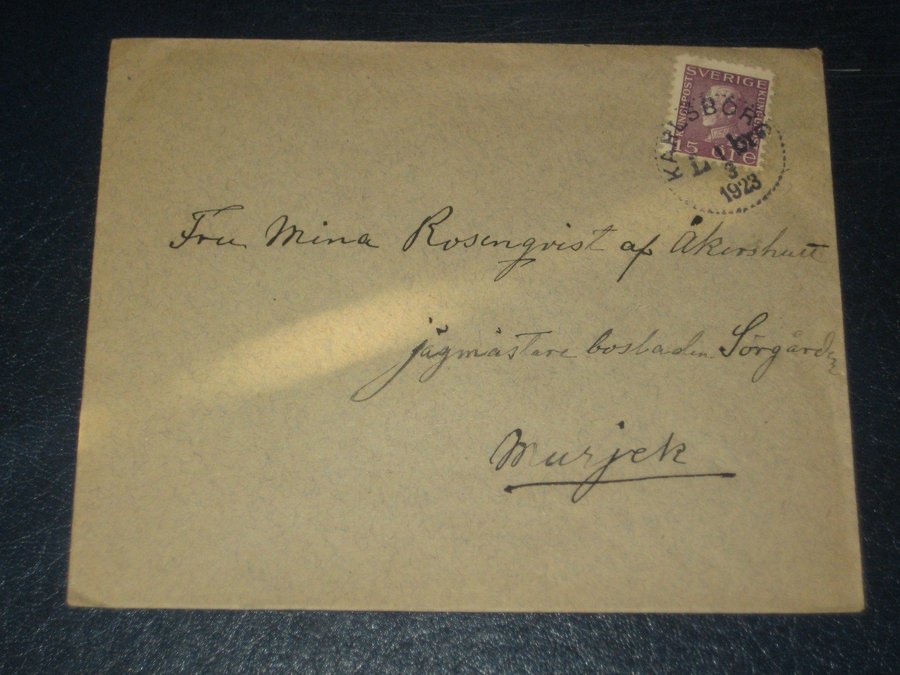 SVERIGE
KARLSBORG
L br
3
1923
Fru Mina Rosenqvist af Åkershult
jägmästare bostaden Sörgården
Murjek